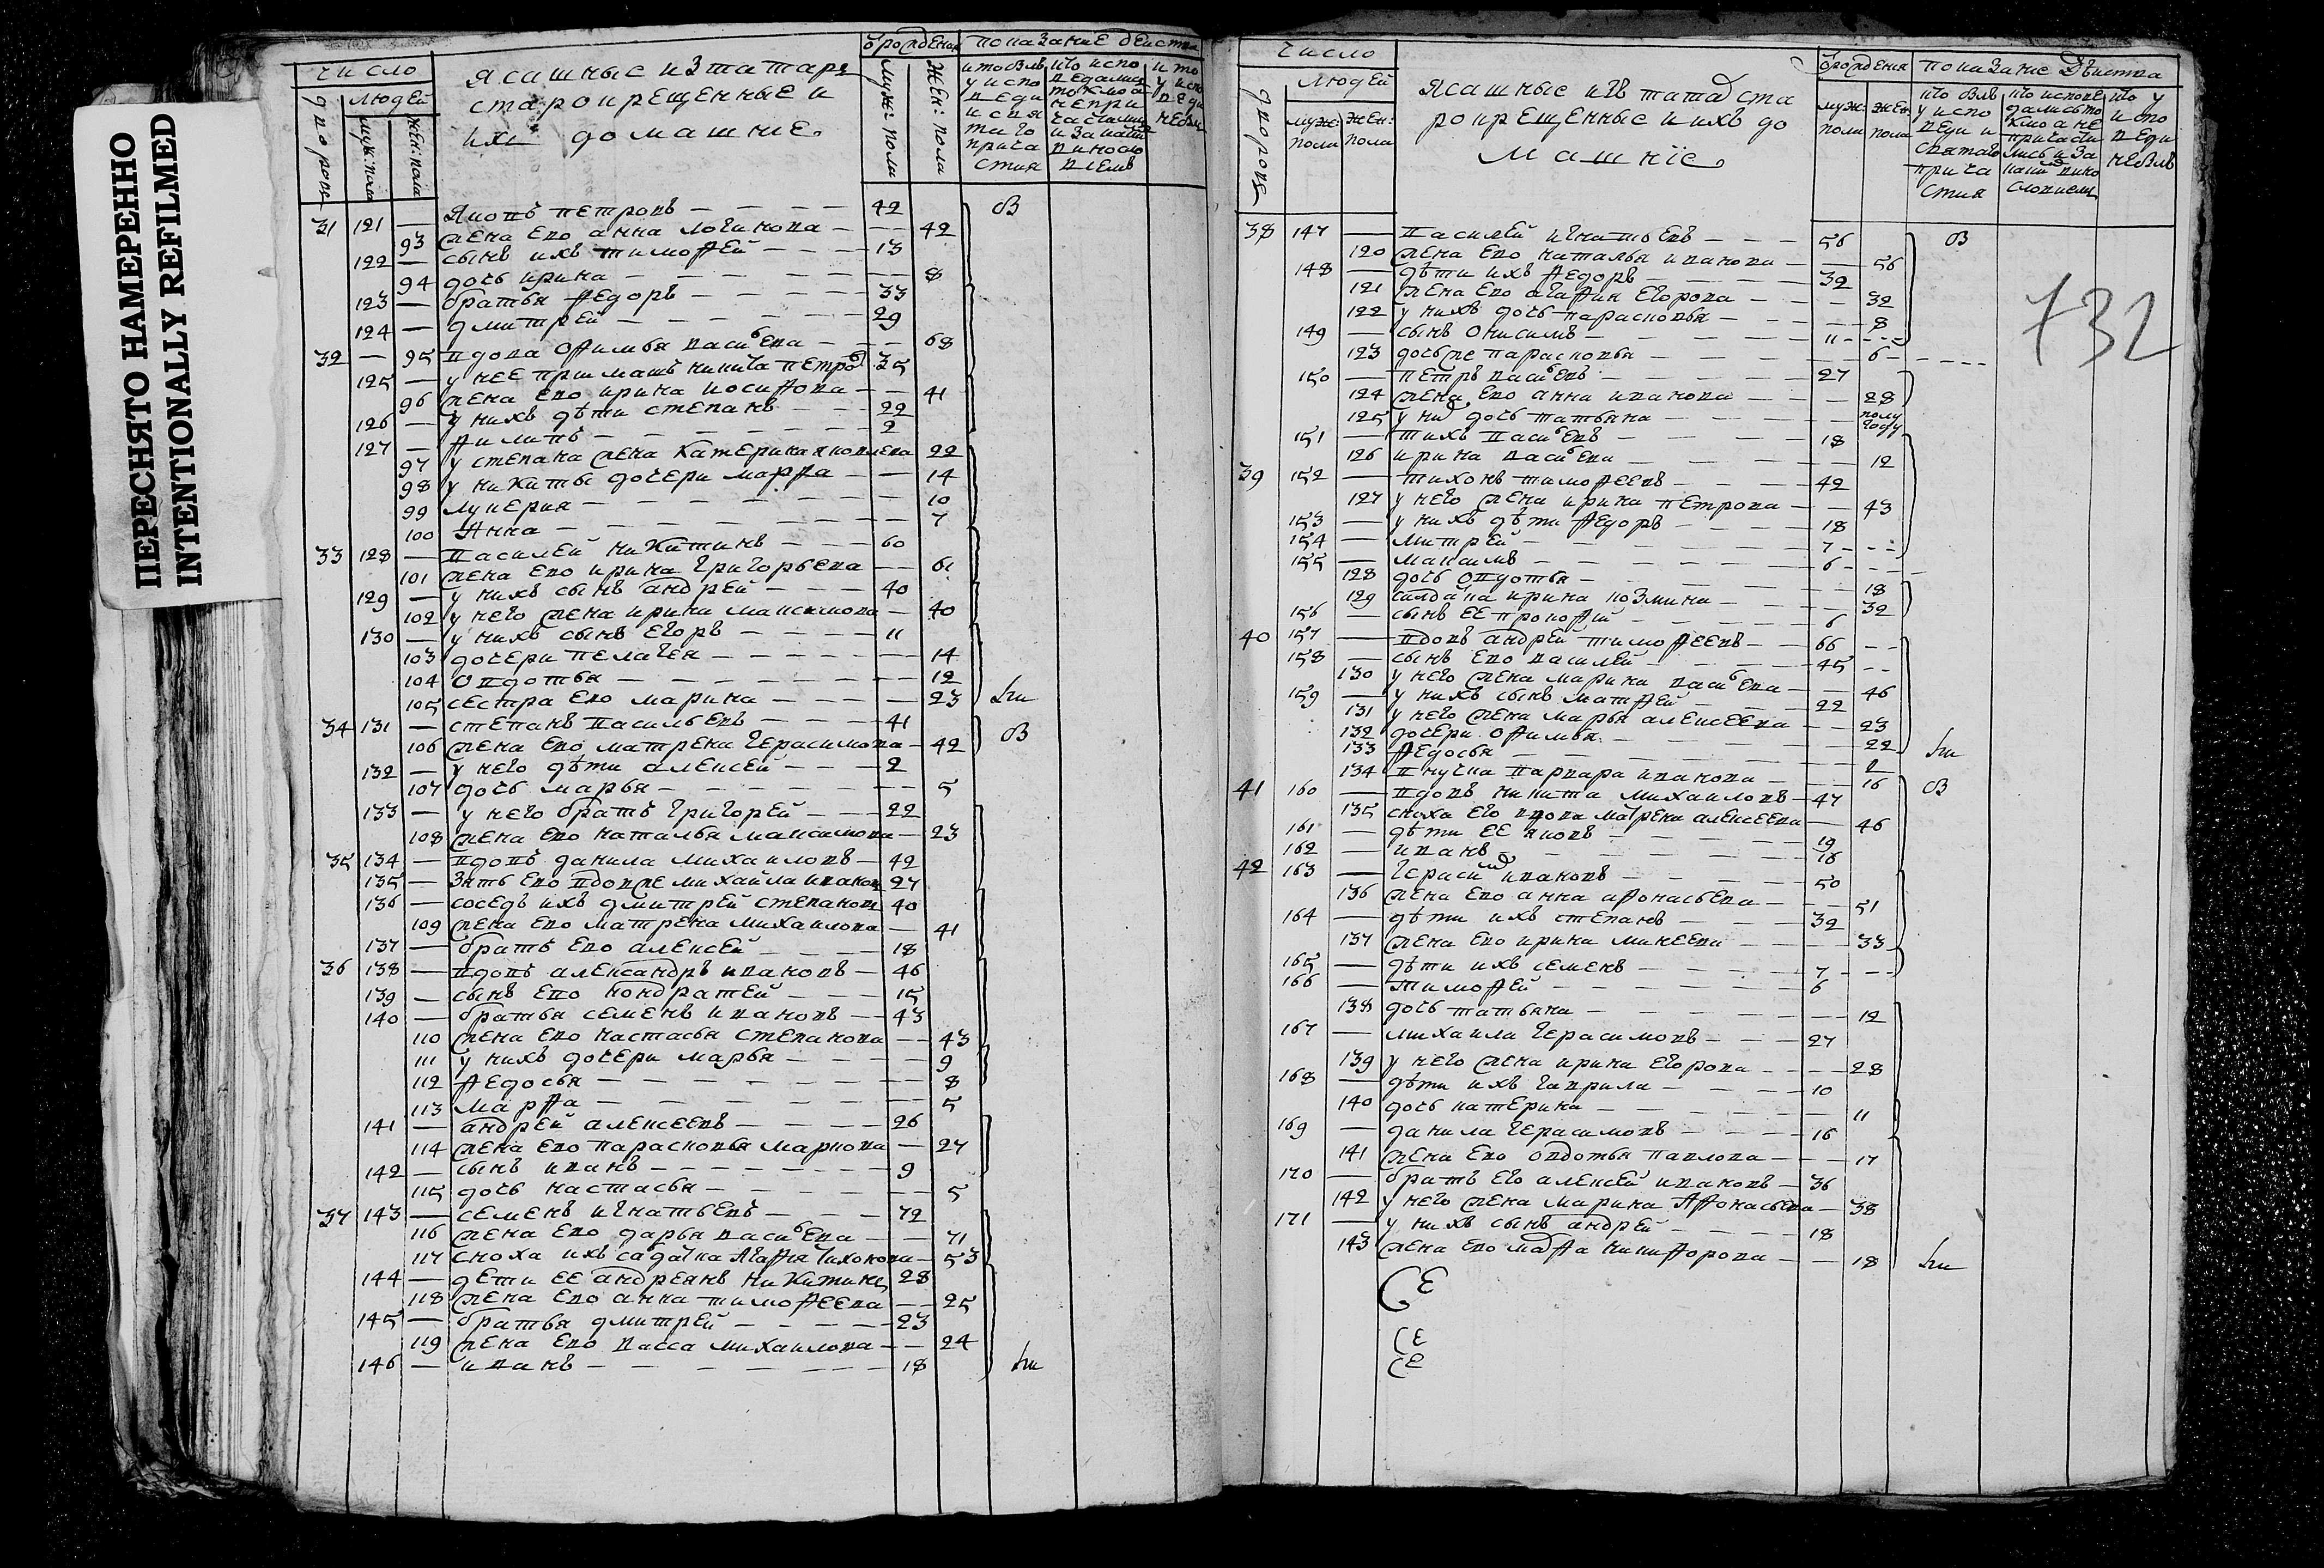 ПЕРЕСНЯТО НАМЕРЕННО
INTENTIONALLY REFILMED
число
дворовъ
людей
муж: пола
жен: пола
Ясашные изъ татаръ
старокрещенные и
ихъ домашние
отрождения
муж: пола
жен: пола
показание действа
кто былъ у исповеди и святаго причастия
31 121 — Яковъ Петровъ — 42
93 жена ево Анна Логинова — 42
122 — сынъ ихъ Тимофей — 13
94 дочь Ирина — 8
123 — братья Федоръ — 33
124 — Дмитрей — 29
32 — 95 вдова Офимья Васильева — 68
125 — у нее приимашъ Никита Петровъ 35
96 жена ево Ирина Иосифова — 41
126 — у нихъ дѣти Степанъ — 22
127 — Филипъ — 2
97 у Степана жена Катерина Яковлева 22
98 у Никиты дочери Марфа — 14
99 Лукерия — 10
100 Анна — 7
33 128 — Василей Никитинъ — 60
101 жена ево Ирина Григорьева — 61
129 — у нихъ сынъ Андрей — 40
102 у него жена Ирина Максимова — 40
130 — у нихъ сынъ Егоръ — 11
103 дочери Пелагея — 14
104 Овдотья — 12
105 сестра ево Марина — 23
34 131 — Степанъ Васильевъ — 41
106 жена ево Матрена Герасимова — 42
132 — у него дѣти Алексей — 2
107 дочь Марья — 5
133 — у него братъ Григорей — 22
108 жена ево Наталья Максимова — 23
35 134 — вдовъ Данила Михаиловъ — 42
135 — зять ево вдов же Михайла Иванов 27
136 — соседъ ихъ Дмитрей Степанов 40
109 жена ево Матрена Михаилова — 41
137 — братъ ево Алексей — 18
36 138 — вдовъ Александръ Ивановъ — 46
139 — сынъ ево Кондратей — 15
140 — братья Семенъ Ивановъ — 43
110 жена ево Настасья Степанова — 43
111 у нихъ дочери Марья — 9
112 Федосья — 8
113 Марфа — 5
141 — Андрей Алексеевъ — 26
114 жена ево Парасковья Маркова — 27
142 — сынъ Иванъ — 9
115 дочь Настасья — 5
37 143 — Семенъ Игнатьевъ — 72
116 жена ево Дарья Васильева — 71
117 сноха ихъ салдатка Агафия Тихонова — 53
144 — дети ее Андреянъ Никитинъ 28
118 жена ево Анна Тимофеева — 25
145 — братья Дмитрей — 23
119 жена ево Васса Михаилова — 24
146 — Иванъ — 18
число
дворовъ
людей
муж: пола
жен: пола
Ясашные изъ татар ста
рокрещенные и ихъ до
машнїе
отрождения
муж: пола
жен: пола
показание дѣиства
кто былъ у исповеди и святаго причастия
кто у исповеди не былъ
732
38 147 — Василей Игнатьевъ — 56
120 жена ево Наталья Иванова — 56
148 — дѣти ихъ Федоръ — 32
121 жена ево Агафия Егорова — 32
122 у нихъ дочь Парасковья — 8
149 — сынъ Онисимъ — 11
123 дочь же Парасковья — 6
150 — Петръ Васильевъ — 27
124 жена ево Анна Иванова — 28
125 у них дочь Татьяна — полу году
151 — Тихъ Васильевъ — 18
126 Ирина Васильева — 12
39 152 — Тихонъ Тимофеевъ — 42
127 у него жена Ирина Петрова — 43
153 — у нихъ дѣти Федоръ — 18
154 — Митрей — 7
155 — Максимъ — 6
128 дочь Овдотья — 18
129 салдатка Ирина Козмина — 32
156 — сынъ ее Прокофей — 6
40 157 — вдовъ Андрей Тимофеевъ — 66
158 — сынъ ево Василей — 45
130 у него жена Марина Васильева — 46
159 — у нихъ сынъ Матфей — 22
131 у него жена Марья Алексеева — 23
132 дочери Офимья — 22
133 Федосья — 2
134 внучка Варвара Иванова — 16
41 160 — вдовъ Никита Михаиловъ — 47
135 сноха его вдова Матрена Алексеева — 46
161 — дѣти ее Яковъ — 19
162 — Иванъ — 16
42 163 — Герасим Ивановъ — 50
136 жена ево Анна Афонасьева — 51
164 — дѣти ихъ Степанъ — 32
137 жена ево Ирина Минеева — 33
165 — дѣти ихъ Семенъ — 7
166 — Тимофей — 6
138 дочь Татьяна — 12
167 — Михаила Герасимовъ — 27
139 у него жена Ирина Егорова — 28
168 — дѣти ихъ Гаврила — 10
140 дочь Катерина — 11
169 — Данила Герасимовъ — 16
141 жена ево Овдотья Павлова — 17
170 — братъ его Алексей Ивановъ — 36
142 у него жена Марина Афонасьева — 38
171 — у нихъ сынъ Андрей — 18
143 жена ево Марфа Никифорова — 18